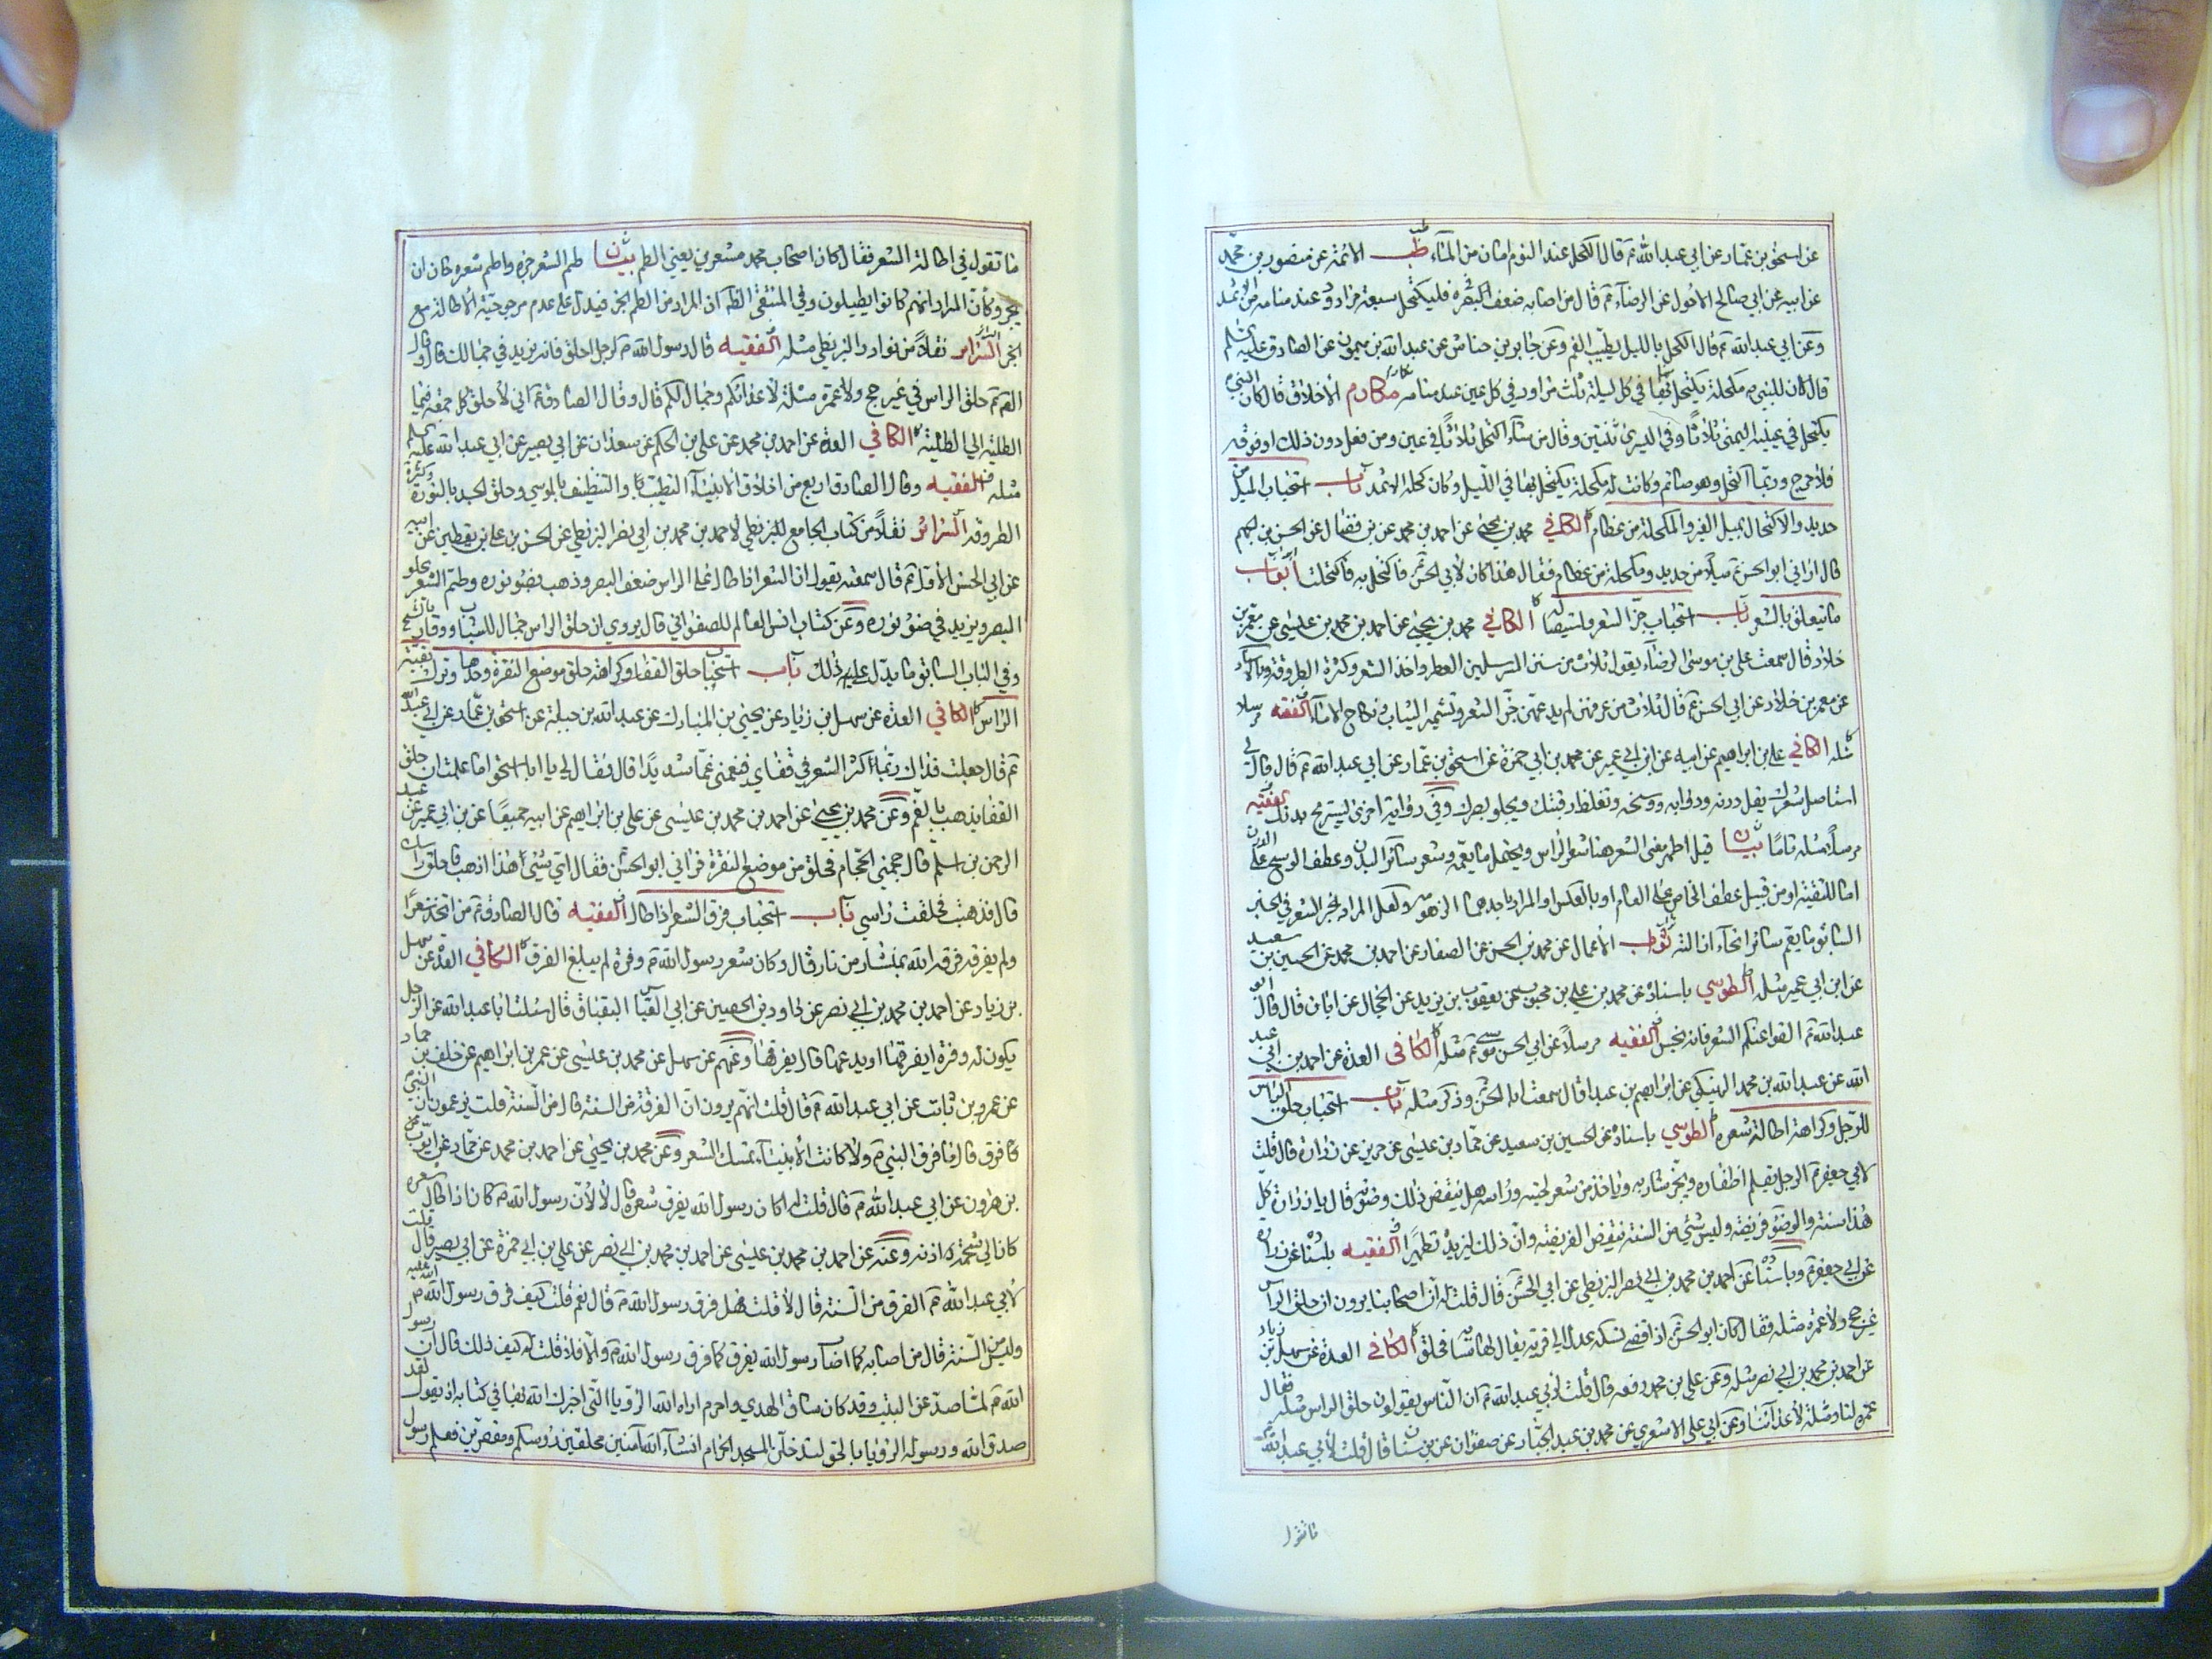 عن اسحق بن عمار عن ابي عبد الله ع قال الكحل عند النوم امان من الماء طب الائمة عن منصور بن محمد
عن ابيه عن ابي صالح الاحول عن الرضا ع قال من اصابه ضعف البصره فليكتحل سبعة مراود عند منامه من الاثمد
وعن ابي عبد الله ع قال الكحل بالليل يطيب الفم وعن جابر بن عن عبد الله بن ميمون عن الصادق عليه السلم
قال كان للنبي ص مكحلة يكتحل بها في كل ليلة ثلث مراود في كل عين عند منامه مكارم الاخلاق قال كان النبي ص
يكتحل في عينه اليمنى ثلاثا وفي اليسرى ثنتين وقال من شاء اكتحل ثلاثا في عين ومن فعل دون ذلك او فوقه
فلا حرج وربما اكتحل وهو صائم وكانت له مكحلة يكتحل بها في الليل وكان كحله الاثمد باب استحباب الميل من
حديد والاكتحال بميل الغير والمكحلة من عظام الكافي محمد بن يحيى عن احمد بن محمد عن بن فضال عن الحسن بن الجهم
قال اراني ابو الحسن ع ميلا من حديد ومكحلة من عظام فقال هذا كان لابي الحسن ع فاكتحل به فاكتحلت ابواب
ما يتعلق بالشعر باب استحباب جز الشعر واستيصاله الكافي محمد بن يحيى عن احمد بن محمد بن عيسى عن معمر بن
خلاد قال سمعت علي بن موسى الرضا ع يقول ثلاث من سنن المرسلين العطر واخذ الشعر وكثرة الطروقة
عن معمر بن خلاد عن ابي الحسن ع قال ثلاث من عرفهن لم يدعهن جز الشعر وتشمير الثياب ونكاح الاماء الفقيه مرسلا
مثله الكافي علي بن ابراهيم عن ابيه عن ابن ابي عمير عن محمد بن ابي حمزة عن اسحق بن عمار عن ابي عبد الله ع قال قال لي
استاصل شعرك يقل درنه ودوابه ووسخه وتغلظ رقبتك ويجلو بصرك وفي رواية اخرى ليستريح بدنك الفقيه
مرسلا مثله تاما بيان قيل اطهر معنى الشعر هنا شعر الراس ويحتمل ما يعمه وشعر سائر البدن وعطف الوسخ على الدرن
اما للتفنن او من قبيل عطف الخاص على العام او بالعكس او المراد باحدهما الزهومة ولعل المراد بجز الشعر في الخبر
السابق ما يعم سائر انحاء ازالته ثواب الاعمال عن محمد بن الحسن عن الصفار عن احمد بن محمد عن الحسين بن سعيد
عن ابن ابي عمير مثله الطوسي باسناده عن محمد بن علي بن محبوب عن يعقوب بن يزيد عن عن ابان قال قال ابو
عبد الله ع القوا عنكم الشعر فانه نجس الفقيه مرسلا عن ابي الحسن موسى ع مثله الكافي العدة عن احمد بن ابي عبد
الله عن عبد الله بن محمد النهيكي عن ابراهيم بن عبد قال سمعت ابا الحسن ع وذكر مثله باب استحباب حلق الراس
للرجل وكراهة اطالة شعره الطوسي باسناده عن الحسين بن سعيد عن حماد بن عيسى عن حريز عن زرارة قال قلت
لابي جعفر ع الرجل يقلم اظفاره ويجز شاربه وياخذ من شعر لحيته وراسه هل ينقض ذلك وضوئه قال يا زرارة كل
هذا سنة والوضوء فريضة وليس شئ من السنة ينقض الفريضة وان ذلك ليزيده تطهيرا الفقيه باسناده عن زرارة
عن ابي جعفر ع وباسناده عن احمد بن محمد بن ابي نصر البزنطي عن ابي الحسن ع قال قلت له ان اصحابنا يرون ان حلق الراس
في غير حج ولا عمرة مثلة فقال كان ابو الحسن ع اذا قضى نسكه عدل الى قرية يقال لها ساية فحلق الكافي العدة عن سهل بن زياد
عن احمد بن محمد بن ابي نصر مثله وعن علي بن محمد رفعه قال قلت لابي عبد الله ع ان الناس يقولون حلق الراس مثلة فقال
عمرة لنا ومثلة لاعدائنا وعن ابي علي الاشعري عن محمد بن عبد الجبار عن صفوان عن بن سنان قال قلت لابي عبد الله ع
ما تقول
ما تقول في اطالة الشعر فقال كان اصحاب محمد مشعرين يعني الطم بيان طم الشعر جزه واطم شعره حان ان
يجز وكان المراد انهم كانوا يطيلون وفي المنتقى الظم ان المراد من الطم الجز فيدل على عدم مرجوحية الاطالة مع
الجز السرائر نقلا من نوادر البزنطي مثله الفقيه قال رسول الله ص لرجل احلق فانه يزيد في جمالك قال وقال
الص ع حلق الراس في غير حج ولا عمرة مثلة لاعدائكم وجمال لكم قال وقال الصادق ع اني لاحلق كل جمعة فيما
الطلية الى الطلية الكافي العدة عن احمد بن محمد عن علي بن الحكم عن سعدان عن ابي بصير عن ابي عبد الله عليه السلم
مثله الفقيه وقال الصادق اربع من اخلاق الانبياء التطيب والتنظيف بالموسي وحلق الجسد بالنورة وكثرة
الطروقة السرائر نقلا من كتاب الجامع للبزنطي لاحمد بن محمد بن ابي نصر البزنطي عن الحسن بن علي بن يقطين عن ابيه
عن ابي الحسن الاول ع قال سمعته يقول ان الشعر اذا طال على الراس ضعف البصر وذهب بضوء نوره وطم الشعر يجلو
البصر ويزيد في ضوء نوره وعن كتاب انس العالم للصفواني قال يروي ان حلق الراس جمال للشاب ووقار
وفي الباب السابق ما يدل عليه ذلك باب استحباب حلق القفا وكراهة حلق موضع النقرة وحدها وترك بقية
الراس الكافي العدة عن سهل بن زياد عن يحيى بن المبارك عن عبد الله بن جبلة عن اسحق بن عمار عن ابي عبد الله
ع قال جعلت فداك ربما اكثر الشعر في قفاي فيغمني غما شديدا قال فقال لي يا ابا اسحق اما علمت ان حلق
القفا يذهب بالغم وعن محمد بن يحيى عن احمد بن محمد بن عيسى عن علي بن ابراهيم عن ابيه جميعا عن بن ابي عمير عن عبد
الرحمن بن اسلم قال حجمني الحجام فحلق من موضع النقرة فراني ابو الحسن ع فقال اي شئ هذا اذهب فاحلق راسك
قال فذهبت فحلقت راسي باب استحباب فرق الشعر اذا طال الفقيه قال الصادق ع من اتخذ شعرا
ولم يفرقه فرقه الله بمنشار من نار قال وكان شعر رسول الله ص وفرة لم يبلغ الفرق الكافي العدة عن سهل
بن زياد عن احمد بن محمد بن ابي نصر عن داود بن الحصين عن ابي العباس البقباق قال سئلت ابا عبد الله عن الرجل
يكون له وفرة ايفرقها او يدعها قال يفرقها وعنهم عن سهل عن محمد بن عيسى عن عمر بن ابراهيم عن خلف بن حماد
عن عمرو بن ثابت عن ابي عبد الله ع قال قلت انهم يرون ان الفرقة من السنة قال من السنة قلت يزعمون ان النبي ص
فرق قال ما فرق النبي ص ولا كانت الانبياء تمسك الشعر وعن محمد بن يحيى عن احمد بن محمد عن حماد عن ايوب
بن هرون عن ابي عبد الله ع قال قلت له اكان رسول الله يفرق شعره قال لا لان رسول الله ص كان اذا طال شعره
كان الى شحمة اذنه وعنه عن احمد بن محمد بن عيسى عن احمد بن محمد بن ابي نصر عن علي بن ابي حمزة عن ابي بصير قال قلت
لابي عبد الله ع الفرق من السنة قال لا قلت فهل فرق رسول الله ص قال نعم قلت كيف فرق رسول الله
وليس من السنة قال من اصابه كما اصاب رسول الله يفرق كما فرق رسول الله ص والا فلا قلت له كيف ذلك قال ان رسول
الله ص لما صد عن البيت وقد كان ساق الهدي واحرم اراه الله الرؤيا التي اخبرك الله بها في كتابه اذ يقول لقد
صدق الله ورسوله الرؤيا بالحق لتدخلن المسجد الحرام انشاء الله آمنين محلقين رؤسكم ومقصرين فعلم رسول